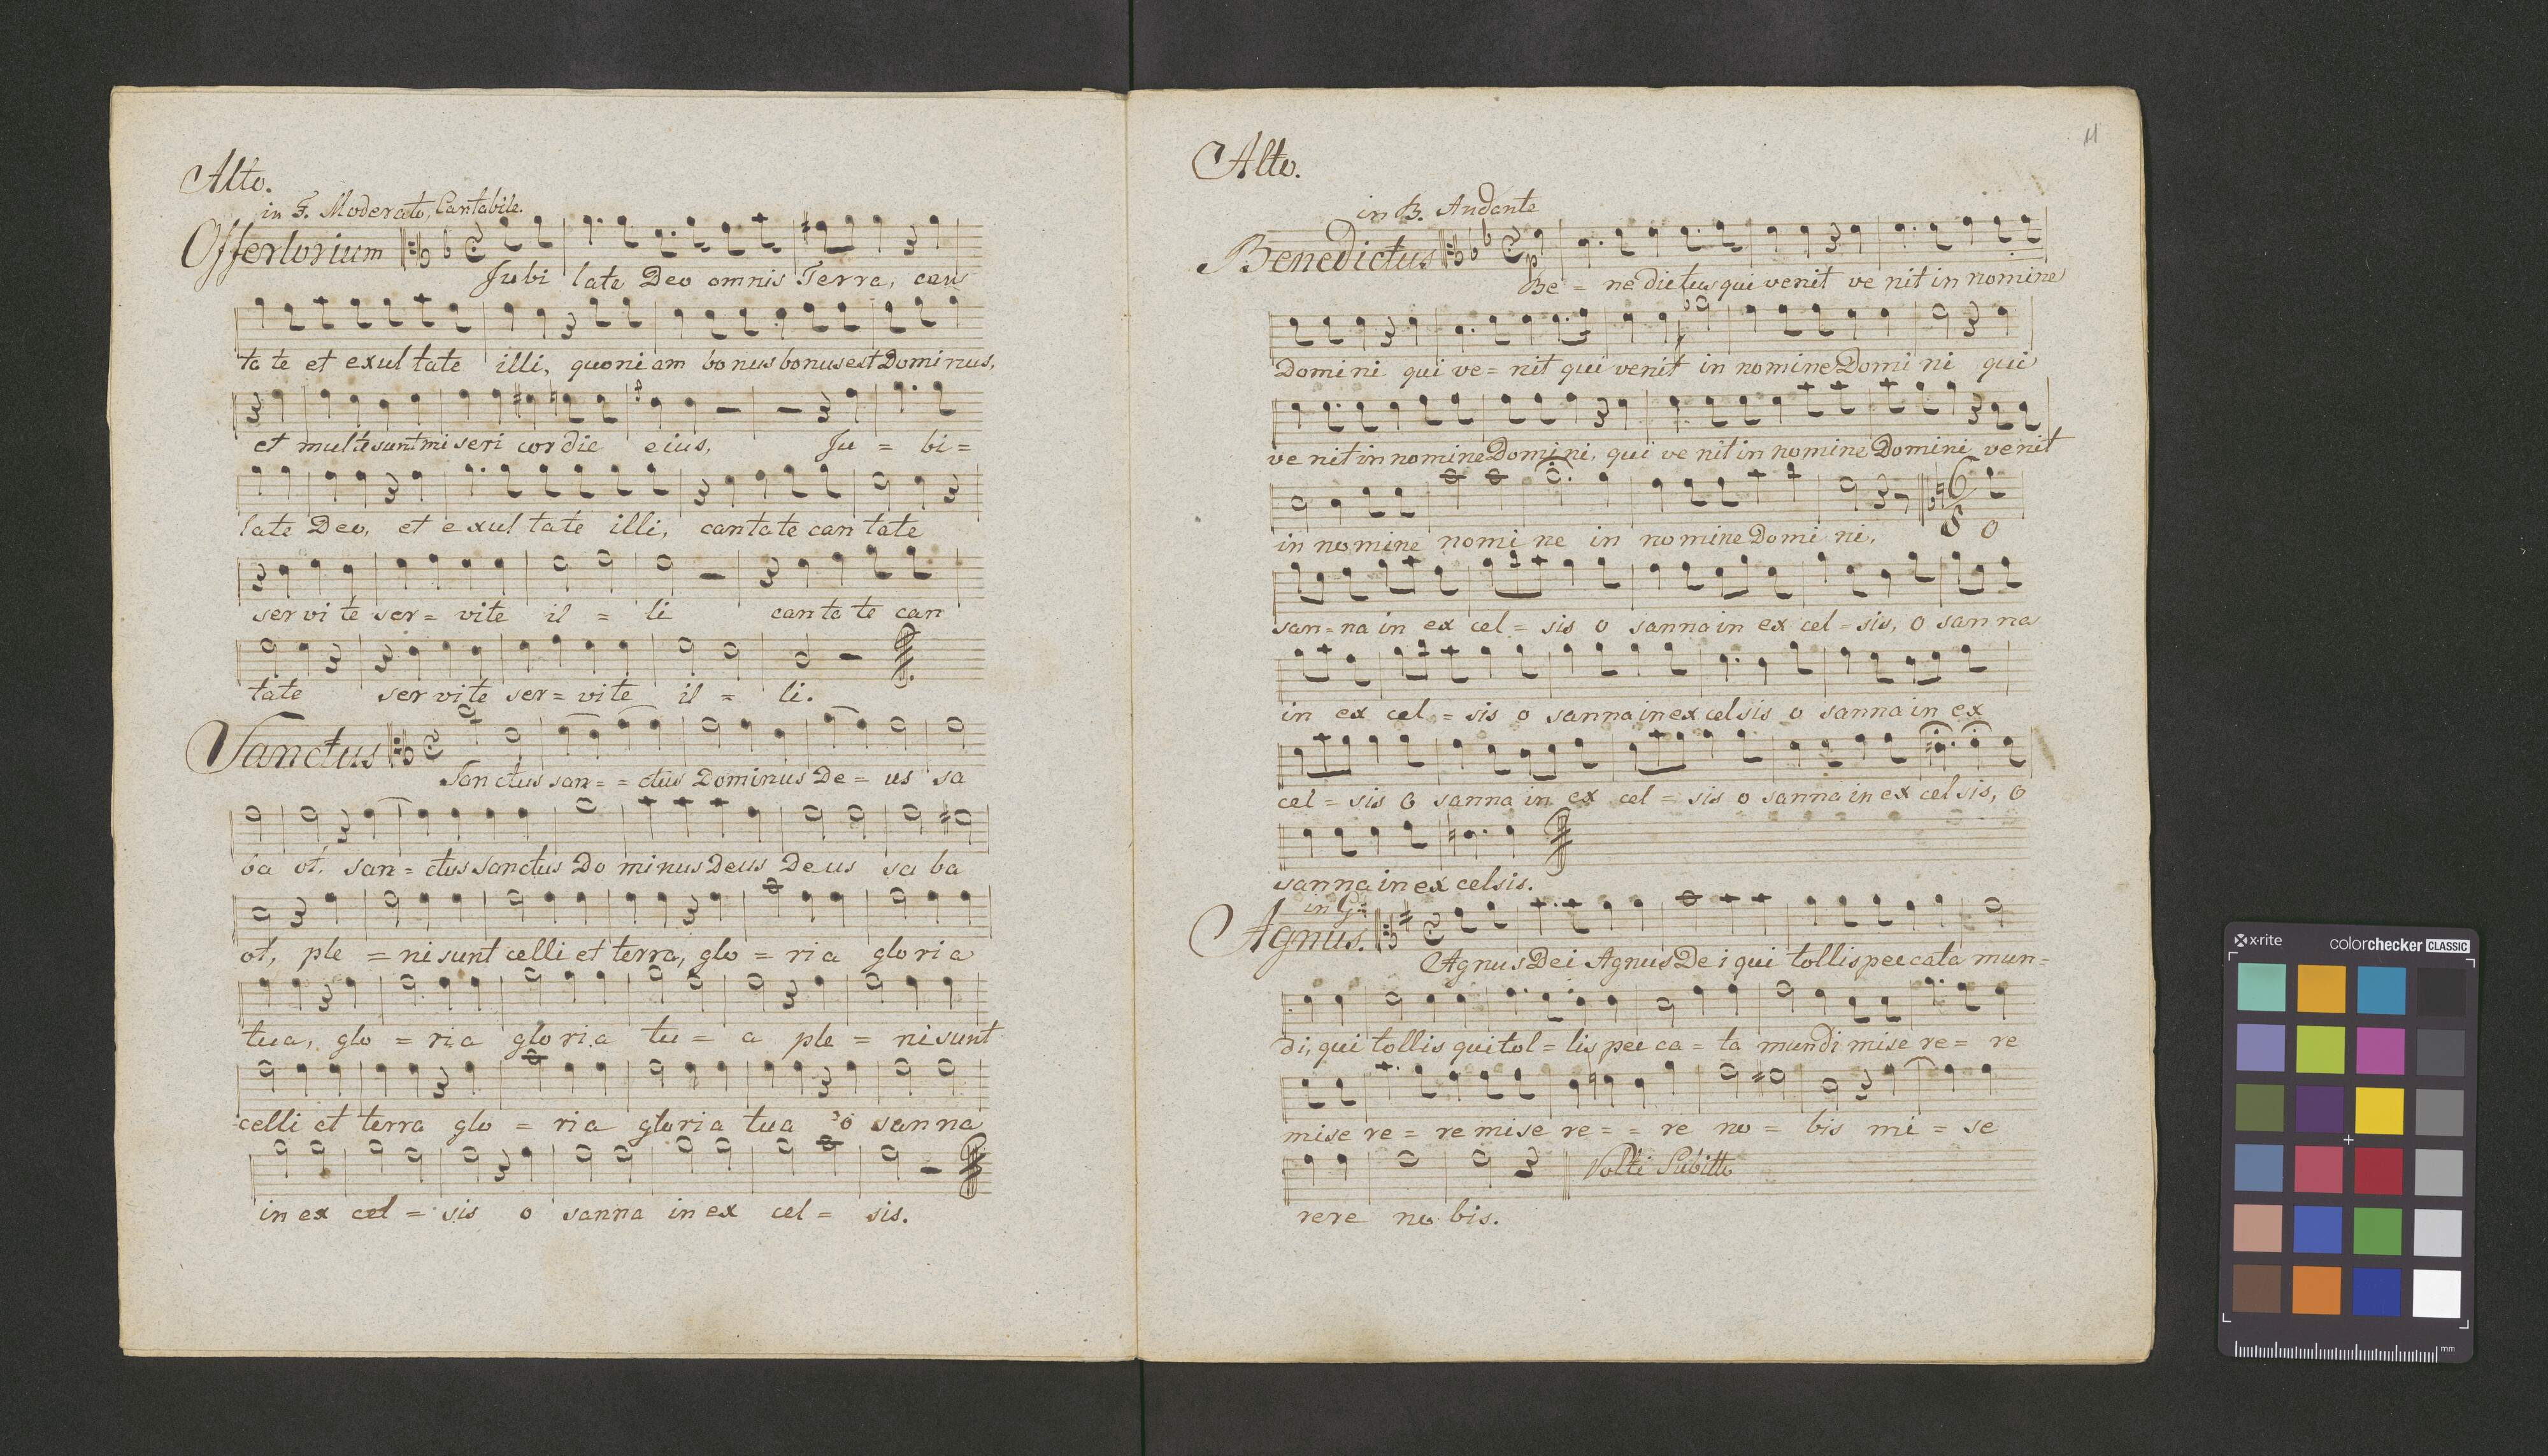 Alto.
in F. Moderato, Cantabile.
Offertorium
Jubi late Deo omnis Terra, can
ta te et exul tate illi, quoni am bo nus bonus est Dominus,
et multe sunt mi seri cor die eius, Ju = bi =
late Deo, et e xul tate illi, cantate can tate
ser vi te ser = vite il = li can ta te can
tate ser vi te ser = vi te il = li.
Sanctus
Sanctus san = = ctus Dominus De = us sa
ba ot, san = ctus sanctus Do minus Deus Deus sa ba
ot, ple = ni sunt celli et terra, glo = ri a glo ri a
tua, glo = ri a glo ri a tu = a ple = ni sunt
celli et terra glo = ri a glo ri a tua o san na
in ex cel = sis o sanna in ex cel = sis.
Alto.
11
in B. Andante
Benedictus
p
Be = ne dictus qui venit ve nit in nomine
Domi ni qui ve = nit qui venit in nomine Domi ni qui
ve nit in nomine Domi ni, qui ve nit in nomine Domini venit
in no mine nomi ne in no mine Domi ni, O
6
8
san = na in ex cel = sis o sanna in ex cel = sis, o san na
in ex cel = sis o sanna in ex celsis o sanna in ex
cel = sis O sanna in ex cel = sis o sanna in ex cel sis, O
sanna in ex celsis.
in G
Agnus.
Agnus Dei Agnus De i qui tollis peccata mun =
di, qui tollis qui tol = lis pec ca = ta mundi mise re = re
mise re = re mise re = = re no = bis mi = se
rere no bis.
Volti Subitto
x-rite
colorchecker CLASSIC
mm